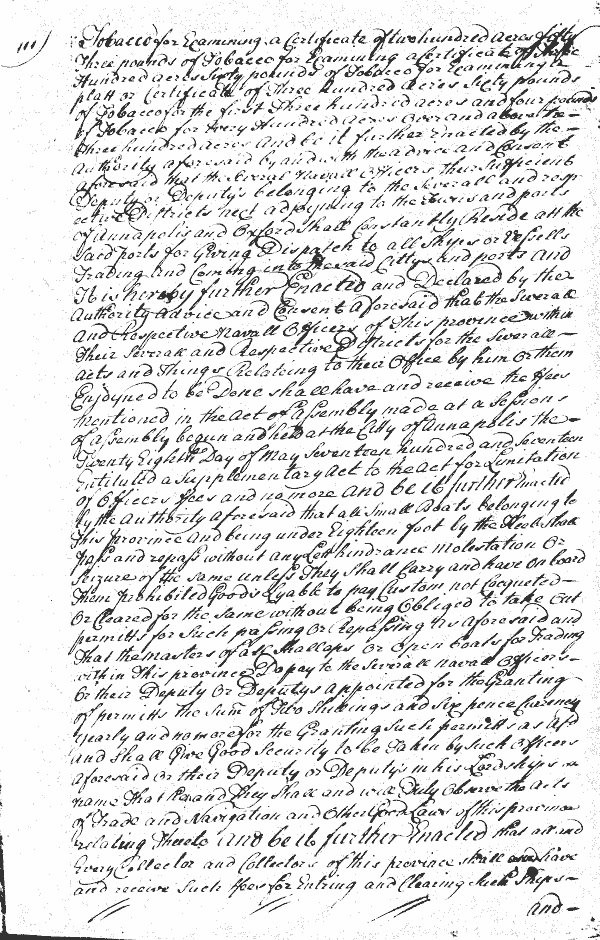 111)
Tobacco for Examining a Certificate of two hundred acres fifty
Three pounds of Tobacco for Examining a Certificate of Three
Hundred acres Sixty pounds of Tobacco for Examining a
platt or Certificate of Three hundred Acres Sixty pounds
of Tobacco for the first Three hundred acres and four pounds
of Tobacco for every Hundred Acres Over and above the
three hundred acres And be it further Enacted by the
Authority aforesaid by and with the advice and Consent
aforesaid that the Several Navall Officers their Sufficient
Deputy or Deputys belonging to the Severall and resp
ective Districts next adjoyning to the Towns and ports
of Annapolis and Oxford shall Constantly Reside att the
said ports for Giving Dispatch to all Ships or Vessells
Trading and Coming into the said Cittys and ports And
It is hereby further Enacted and Declared by the
Authority Advice and Consent Aforesaid that the Severall
And Respective Navall Officers of This province within
Their Severall and Respective Districts for the Severall
acts and Things Relateing to their Office by him or them
Enjoyned to be Done shall have and receive the ffees
mentioned in the Act of Assembly made at a Sessions
of Assembly begun and held at the Citty of Annapolis the
Twenty Eighth Day of May Seventeen hundred and Seventeen
Entituled a Supplementary Act to the Act for Limitation
of Officers ffees and no more And be it further Enacted
by the Authority Aforesaid that all Small Boats belonging to
This Province And being under Eighteen foot by the Keel shall
pass and repass without any Lett hindrance Molestation Or
Seizure of the same unless They shall Carry and have on board
Them prohibited Goods Lyable to pay Custom not Cocqueted
Or Cleared for the same without being Obliged to take out
permitts for Such passing Or Repassing As aforesaid and
That the Masters of all Shallops or Open boats for Trading
within This province Do pay to the Severall navall Officers
Or their Deputy Or Deputys appointed for the Granting
of permitts the Sum of Two Shillings and Six pence Currency
yearly and no more for the Granting Such permitts as Afd
and shall Give Good Security to be Taken by such Officers
aforesaid or their Deputy or Deputys in his Lordships
name That he and They shall and will Duly Observe the Acts
of Trade and Navigation and Other Good Laws of this province
relating Thereto And be it further Enacted that all and
Every Collector and Collectors of this province shall have
and receive Such ffees for Entring and Clearing Such Ships
and